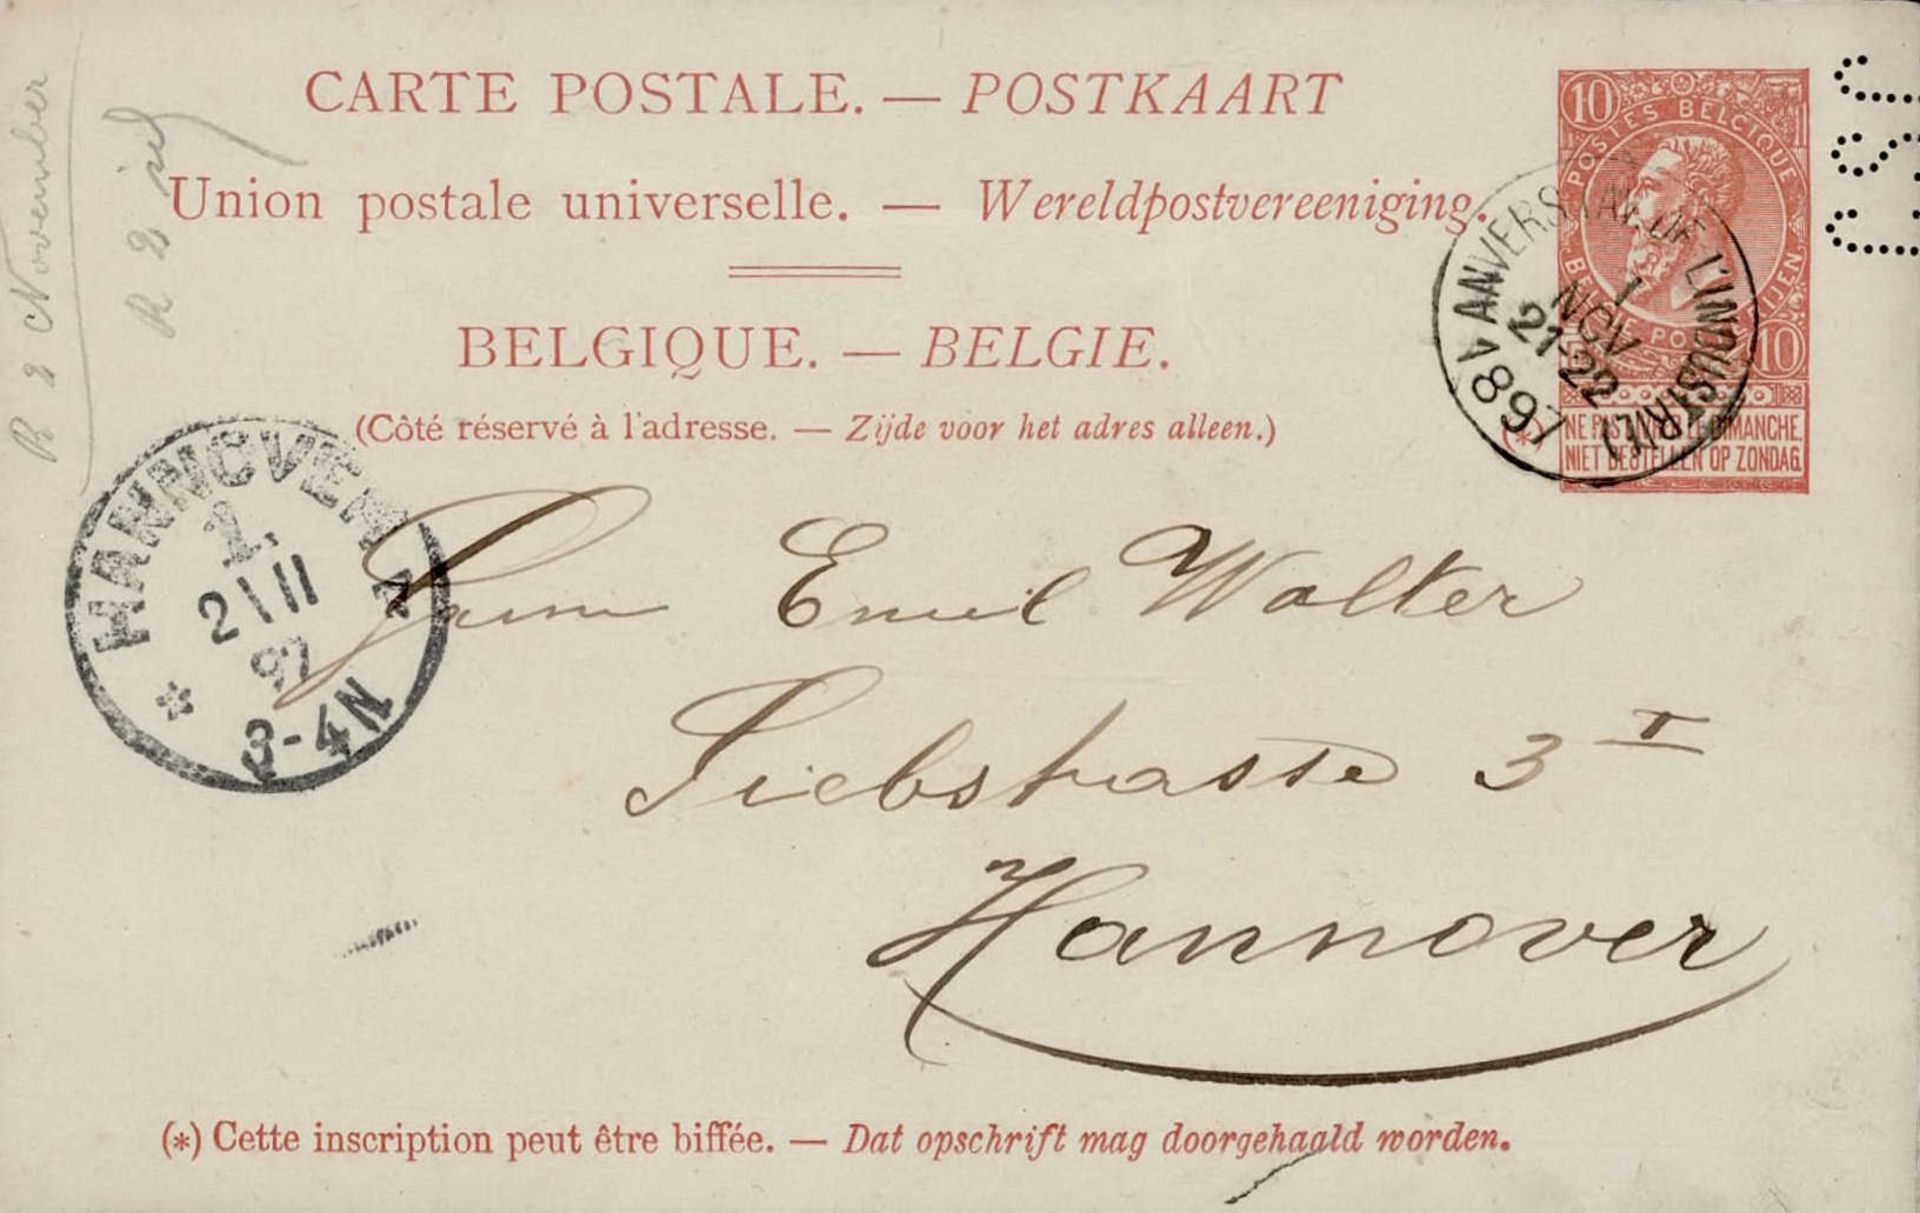 CARTE POSTALE. — POSTKAART
Union postale universelle. — Wereldpostvereeniging.
BELGIQUE. — BELGIE.
(Côté réservé à l'adresse. — Zijde voor het adres alleen.)
10
POSTES BELGIQUE
10
(*) NE PAS LIVRER LE DIMANCHE.
NIET BESTELLEN OP ZONDAG
ANVERS (AV. DE L'INDUSTRIE)
1
NOV
21-22
1897
R 2 November
R 2
HANNOVER
1.
2 11
97
3-4N
Herrn Emil Walter
Liebstrasse 3 I
Hannover
(*) Cette inscription peut être biffée. — Dat opschrift mag doorgehaald worden.